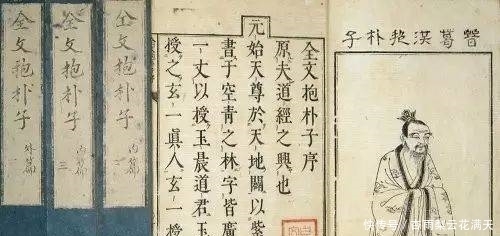 全文抱朴子
外篇
全文抱朴子
三
全文抱朴子
内篇
全文抱朴子序
原夫道經之興也
元始天尊於天地闢以紫
書于空青之林字皆廣
一丈以授玉晨道君玉
授之玄一眞人玄一
晉葛洪抱朴子
快传号/谷雨梨云花满天